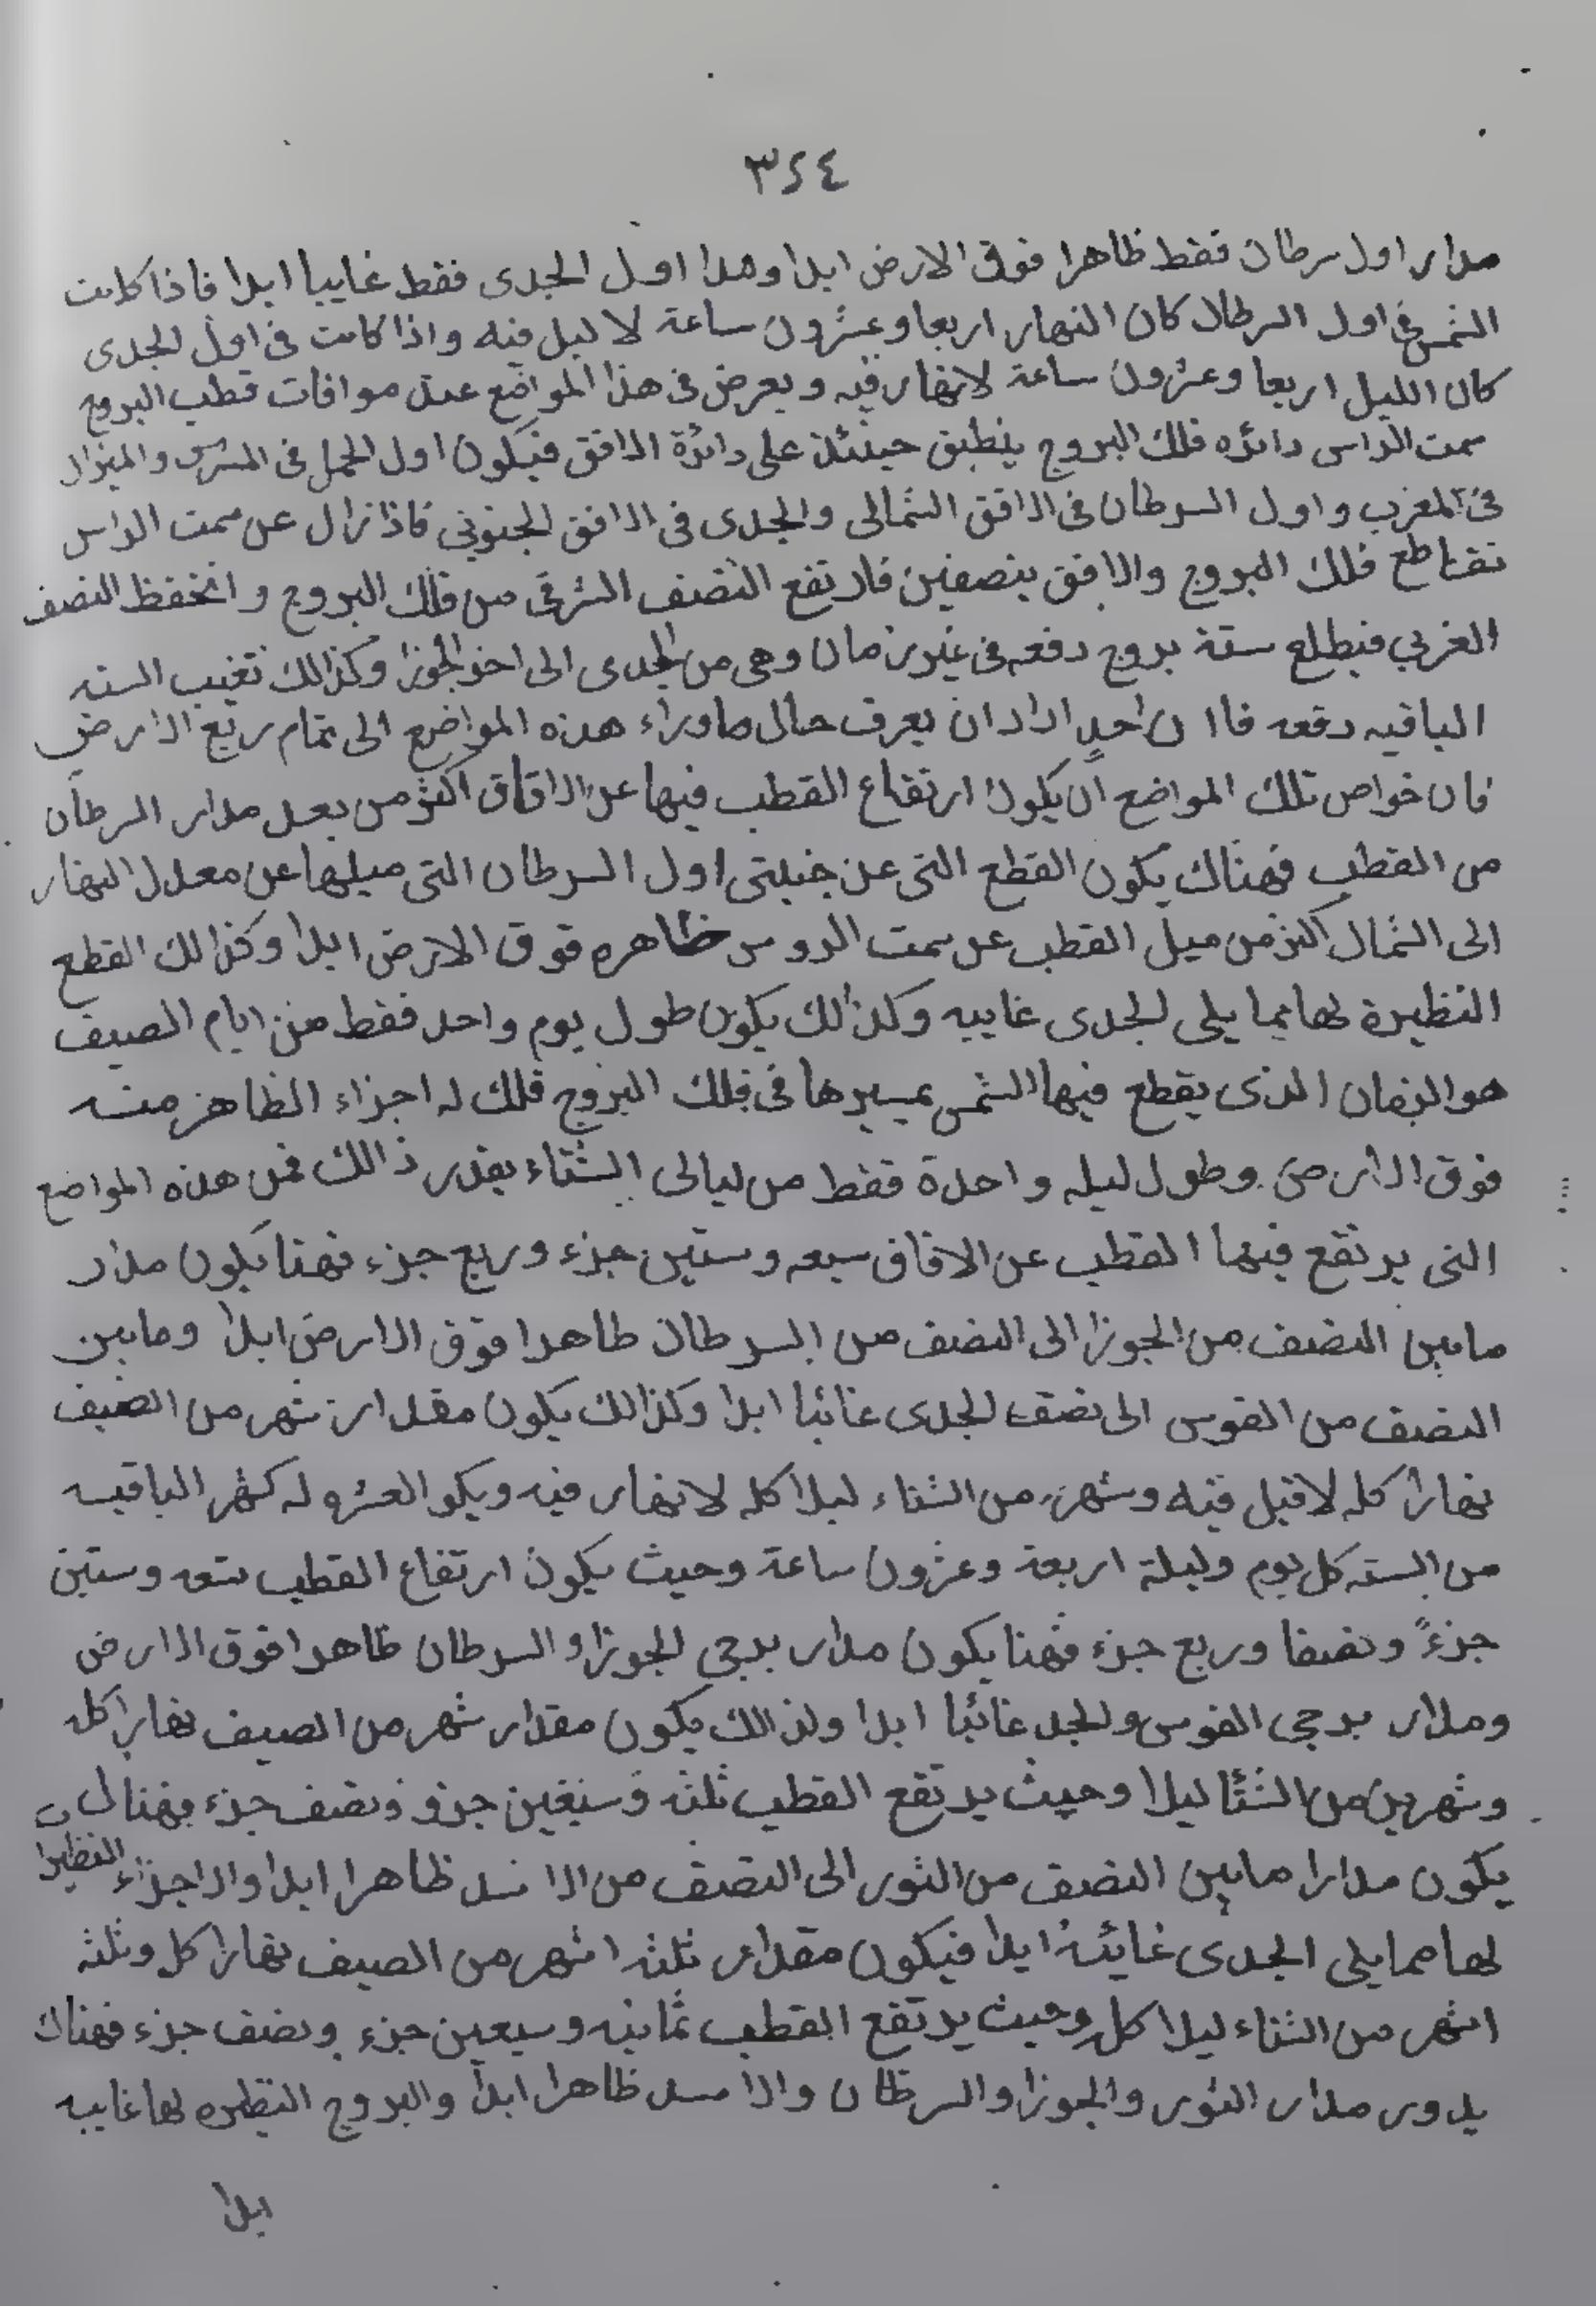 ٣٢٤
مدار اول سرطان فقط ظاهرا فوق الارض ابدا وهدا اول الجدى فقط غايبا ابدا فاذا كانت
الشمس فى اول السرطان كان النهار اربعا وعشرون ساعة لا ليل فيه واذا كانت فى اول الجدى
كان الليل اربعا وعشرون ساعة لانهار فيه ويعرض فى هذا المواضع عند موافات قطب البروج
سمت الراس دائره فلك البروج ينطبق حينئذ على دائرة الافق فيكون اول الحمل فى المشرق والميزان
فى المغرب واول السرطان فى الافق الشمالى والجدى فى الافق الجنوبي فاذا زال عن سمت الراس
تقتاطع فلك البروج والافق بنصفين فارتفع النصف الشرقى من فلك البروج وانخفظ النصف
الغربي فيطلع ستة بروج دفعه فى غير زمان وهى من الجدى الى اخر الجوزا وكذالك تغيب السته
الباقيه دفعه فاا ن احدٍ اراد ان يعرف حال ماوراء هذه المواضع الى تمام ربع الارض
فان خواص تلك المواضع ان يكون ارتفاع القطب فيها عن الافاق اكثر من بعد مدار السرطان
من القطب فهناك يكون القطع التى عن جنبتى اول السرطان التى ميلها عن معدل النهار
الى الشمال اكثر من ميل القطب عن سمت الروس ظاهره فوق الارض ابدا وكذالك القطع
النظيرة لها مما يلى الجدى غاييه وكذالك يكون طول يوم واحد فقط من ايام الصيف
هو الزمان الذى يقطع فيها الشمس بمسيرها فى فلك البروج فلك له اجزاء الظاهر منه
فوق الارض وطول ليله واحدة فقط من ليالى الشتاء بقدر ذالك فمن هذه المواضع
التى يرتفع فيها القطب عن الافاق سبعه وستين جزء وربع جزء فهنا يكون مدار
مابين النصف من الجوزا الى النصف من السرطان ظاهرا فوق الارض ابدا ومابين
النصف من القوس الى نصف الجدى غائبا ابدا وكذالك يكون مقدار شهر من الصيف
نهارا كله لاقيل فيه وشهر من الشتاء ليلا كله لانهار فيه ويكو العشره له كشهر الباقيه
من السته كل يوم وليلة اربعة وعشرون ساعة وحيث يكون ارتفاع القطب تسعه وستين
جزءً ونصفا وربع جزء فهنا يكون مدار برجى الجوزا و السرطان ظاهرا فوق الارض
ومدار برجى القوس والجد غائبا ابدا ولذالك يكون مقدار شهر من الصيف نهارا كله
وشهرين من الشتا ليلا وحيث يرتفع القطب ثلثه وسبعين جزؤ ونصف جزء فهنا
يكون مدارا مابين النصف من الثور الى النصف من الاسد ظاهرا ابدا والاجزاء النظيرا
لها مما يلى الجدى غائبة ابدا فيكون مقدار ثلثه اشهر من الصيف نهارا كل وثلثه
اشهر من الشتاء ليلا كل وحيث يرتفع القطب ثمانيه وسبعين جزء ونصف جزء فهناك
يدور مدار الثور والجوزا والسرطان والاسد ظاهرا ابدا والبروج النظيره لها غايبه
ابدا